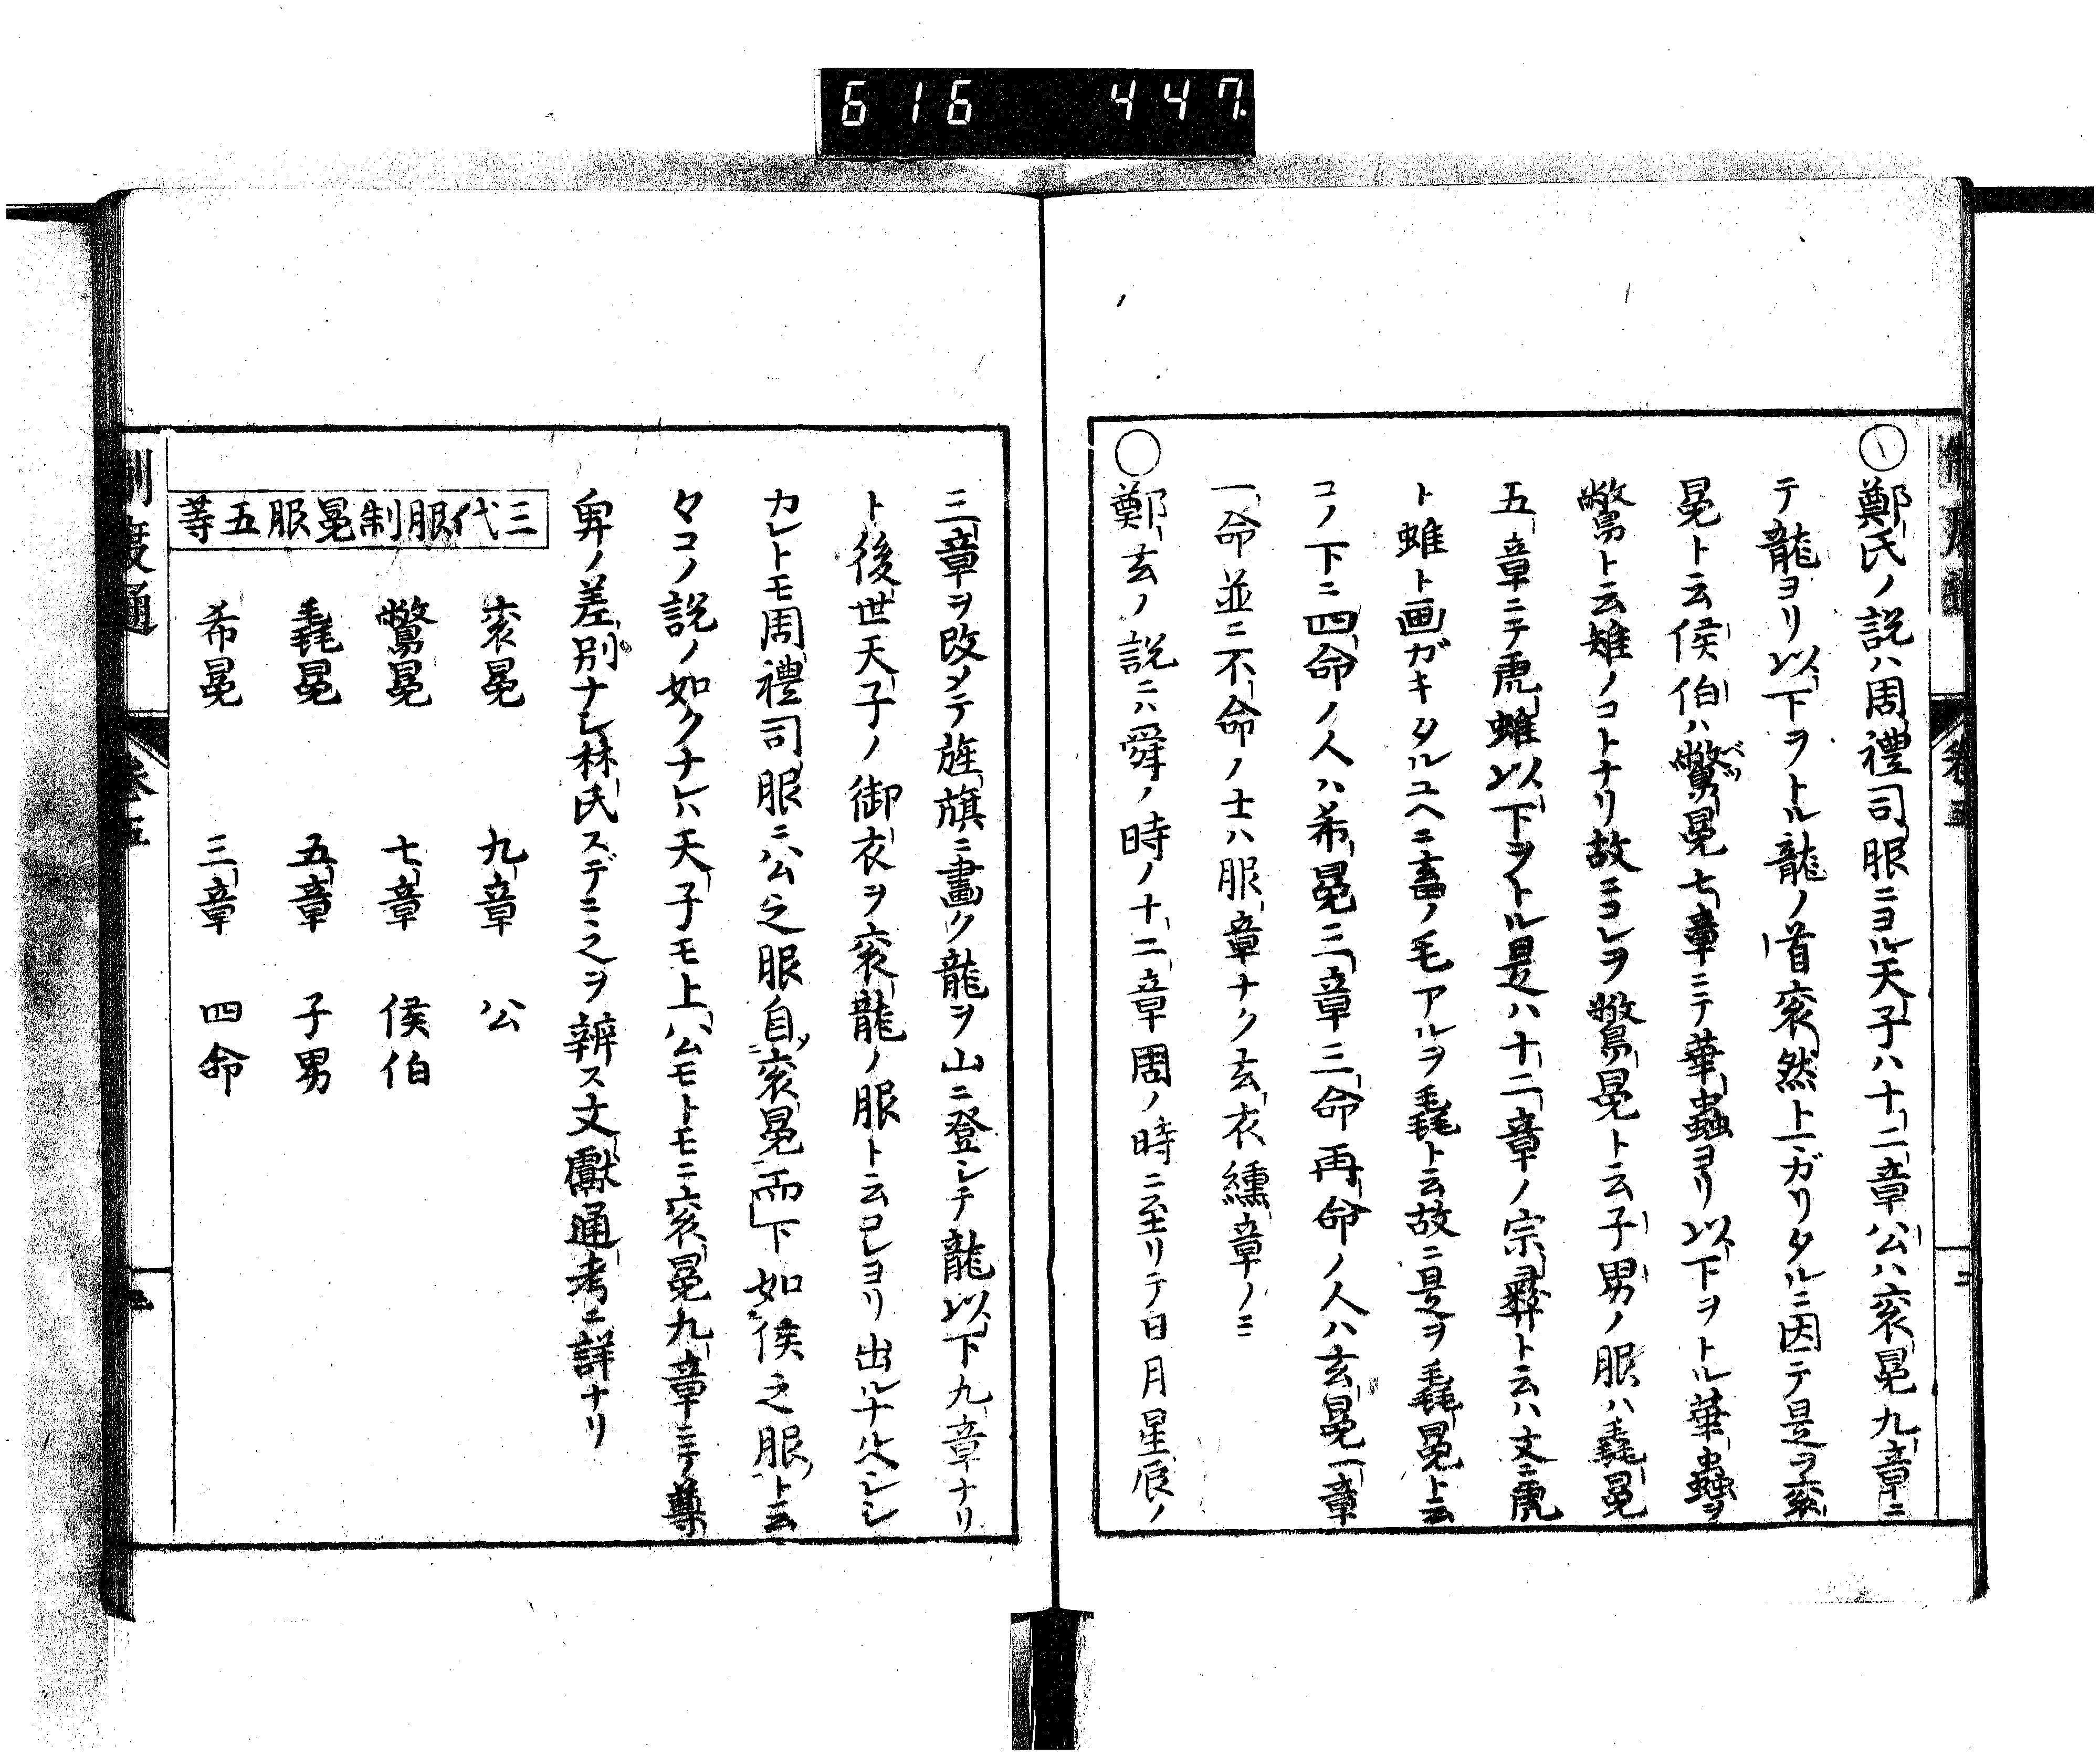 616 447
鄭氏ノ説ハ周禮司服ニヨル天子ハ十二章公ハ袞冕九章ニ
テ龍ヨリ以下ヲトル龍ノ首袞然ト上ガリタルニ因テ是ヲ袞
冕ト云侯伯ハ鷩冕七章ニテ華蟲ヨリ以下ヲトル華蟲ヲ
鷩ト云雉ノコトナリ故ニコレヲ鷩冕ト云子男ノ服ハ毳冕
五章ニテ虎蜼以下ヲトル是ハ十二章ノ宗彝ト云ハ丈ニ虎
ト蜼ト画ガキタルユヘニ畜ノ毛アルヲ毳ト云故ニ是ヲ毳冕ト云
コノ下ニ四命ノ人ハ希冕三章三命再命ノ人ハ玄冕一章
一命並ニ不命ノ士ハ服章ナク玄衣纁章ノミ
鄭玄ノ説ニハ舜ノ時ノ十二章周ノ時ニ至リテ日月星辰ノ
三章ヲ改メテ旌旗ニ畫ク龍ヲ山ニ登シテ龍以下九章ナリ
ト後世天子ノ御衣ヲ袞龍ノ服ト云コレヨリ出ルナルベシシ
カレトモ周禮司服ニハ公之服自袞冕而下如侯之服ト云
タコノ説ノ如クナレハ天子モ上公モトモニ袞冕九章ニテ尊
卑ノ差別ナシ林氏スデニ之ヲ辨ス文獻通考ニ詳ナリ
三代服制冕服五等
袞冕 九章 公
鷩冕 七章 侯伯
毳冕 五章 子男
希冕 三章 四命
制度通 卷五